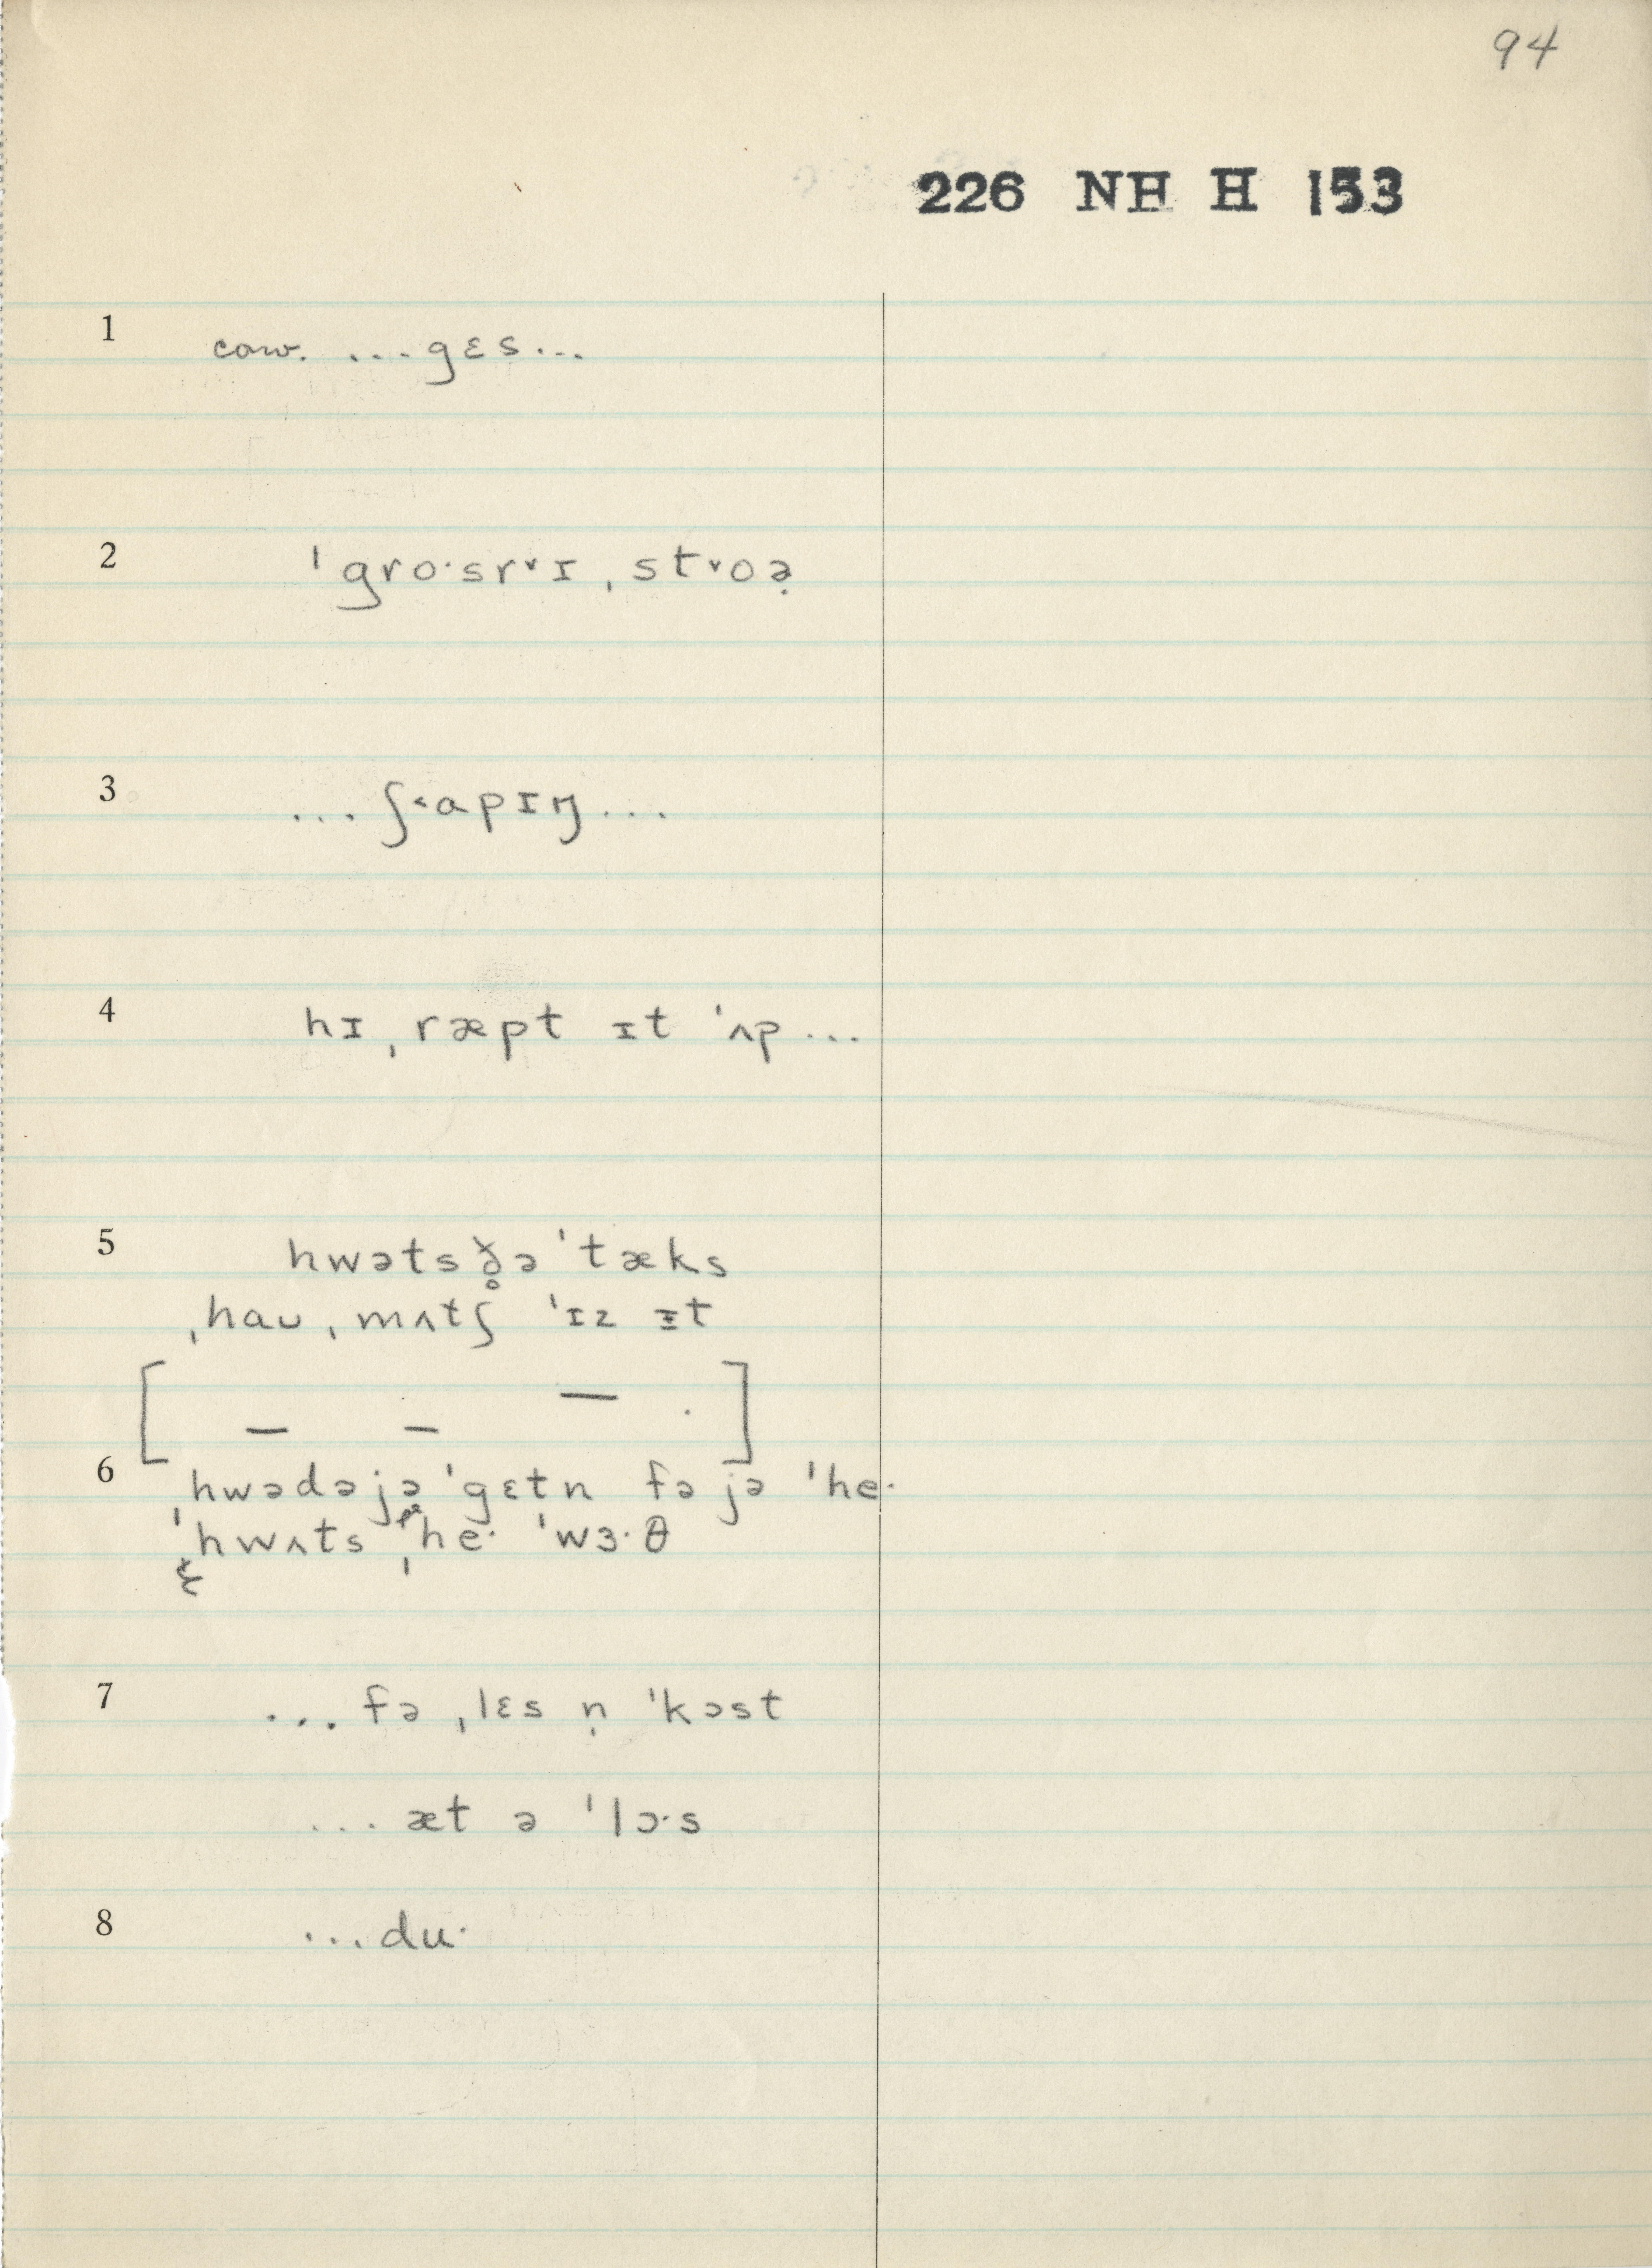 94
226 NH H 153
1 cow. ...gɛs...
2 ˈgro·sr˅ɪˌst˅oə̣
3 ...ʃ˂apɪŋ...
4 hɪˌræpt ɪt ˈʌp...
5 hwətsð̥əˈtæks
ˌhaʊˌmʌtʃ ˈɪz ɪt
[ – – – · ]
6 ˌhwədəjəˈgɛtn fə jə ˈhe·
ˈhwʌts ˌhe· ˈwɜ·θ
7 ...fəˌlɛs ṇ ˈkɔst
...æt ə ˈlɔ·s
8 ...du·